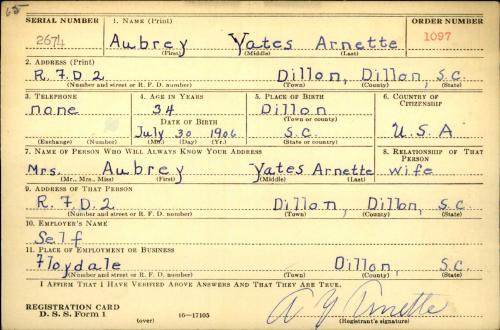 65
SERIAL NUMBER 1. NAME (Print) ORDER NUMBER
2674 Aubrey Yates Arnette 1097
(First) (Middle) (Last)
2. ADDRESS (Print)
R.F.D.2 Dillon, Dillon, S.C.
(Number and street or R. F. D. number) (Town) (County) (State)
3. TELEPHONE 4. AGE IN YEARS 5. PLACE OF BIRTH 6. COUNTRY OF CITIZENSHIP
none 34 Dillon
DATE OF BIRTH (Town or county)
July 30 1906 S.C. U.S.A
(Exchange) (Number) (Mo.) (Day) (Yr.) (State or country)
7. NAME OF PERSON WHO WILL ALWAYS KNOW YOUR ADDRESS 8. RELATIONSHIP OF THAT PERSON
Mrs. Aubrey Yates Arnette wife
(Mr., Mrs., Miss) (First) (Middle) (Last)
9. ADDRESS OF THAT PERSON
R.F.D.2 Dillon, Dillon, S.C.
(Number and street or R. F. D. number) (Town) (County) (State)
10. EMPLOYER'S NAME
Self
11. PLACE OF EMPLOYMENT OR BUSINESS
Floydale Dillon, S.C.
(Number and street or R. F. D. number) (Town) (County) (State)
I AFFIRM THAT I HAVE VERIFIED ABOVE ANSWERS AND THAT THEY ARE TRUE.
REGISTRATION CARD
D. S. S. Form 1 16—17105 A Y Arnette
(over) (Registrant's signature)